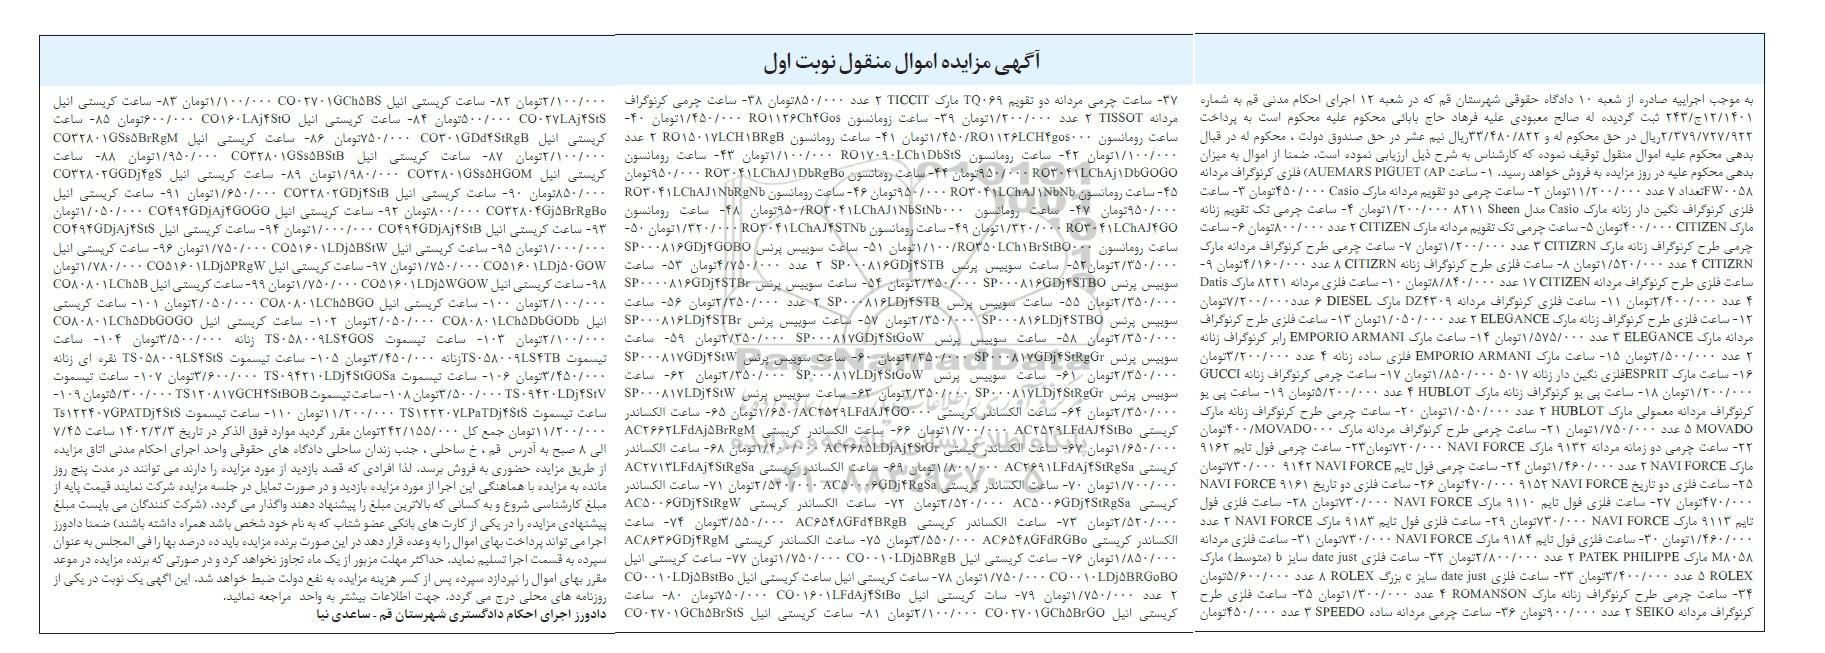 آگهی مزایده اموال منقول نوبت اول
به موجب اجراییه صادره از شعبه ۱۰ دادگاه حقوقی شهرستان قم که در شعبه ۱۲ اجرای احکام مدنی قم به شماره
۱۲/۱۴۰۱ج/۲۴۳ ثبت گردیده له صالح معبودی علیه فرهاد حاج بابائی محکوم علیه محکوم است به پرداخت
۲/۳۷۹/۷۲۷/۹۲۲ریال در حق محکوم له و ۳۳/۴۸۰/۸۲۲ریال نیم عشر در حق صندوق دولت ، محکوم له در قبال
بدهی محکوم علیه اموال منقول توقیف نموده که کارشناس به شرح ذیل ارزیابی نموده است. ضمنا از اموال به میزان
بدهی محکوم علیه در روز مزایده به فروش خواهد رسید. ۱- ساعت AUEMARS PIGUET (AP) فلزی کرنوگراف مردانه
FW۰۰۵۸تعداد ۷ عدد ۱۱/۲۰۰/۰۰۰تومان ۲- ساعت چرمی دو تقویم مردانه مارک Casio ۴۵۰/۰۰۰تومان ۳- ساعت
فلزی کرنوگراف نگین دار زنانه مارک Casio مدل Sheen ۸۲۱۱ ۱/۲۰۰/۰۰۰تومان ۴- ساعت چرمی تک تقویم زنانه
مارک CITIZEN ۴۰۰/۰۰۰تومان ۵- ساعت چرمی تک تقویم مردانه مارک CITIZEN ۲ عدد ۸۰۰/۰۰۰تومان ۶- ساعت
چرمی طرح کرنوگراف زنانه مارک CITIZRN ۳ عدد ۱/۲۰۰/۰۰۰تومان ۷- ساعت چرمی طرح کرنوگراف مردانه مارک
CITIZRN ۴ عدد ۱/۵۲۰/۰۰۰تومان ۸- ساعت فلزی طرح کرنوگراف زنانه CITIZRN ۸ عدد ۴/۱۶۰/۰۰۰تومان ۹-
ساعت فلزی طرح کرنوگراف مردانه CITIZEN ۱۷ عدد ۸/۸۴۰/۰۰۰تومان ۱۰- ساعت فلزی مردانه ۸۲۲۱ مارک Datis
۴ عدد ۲/۴۰۰/۰۰۰تومان ۱۱- ساعت فلزی کرنوگراف مردانه DZ۴۳۰۹ مارک DIESEL ۶ عدد۷/۲۰۰/۰۰۰تومان
۱۲- ساعت فلزی طرح کرنوگراف زنانه مارک ELEGANCE ۲ عدد ۱/۰۵۰/۰۰۰تومان ۱۳- ساعت فلزی طرح کرنوگراف
مردانه مارک ELEGANCE ۳ عدد ۱/۵۷۵/۰۰۰تومان ۱۴- ساعت مارک EMPORIO ARMANI رابر کرنوگراف زنانه
۲ عدد ۲/۵۰۰/۰۰۰تومان ۱۵- ساعت مارک EMPORIO ARMANI فلزی ساده زنانه ۴ عدد ۳/۲۰۰/۰۰۰تومان
۱۶- ساعت مارک ESPRITفلزی نگین دار زنانه ۵۰۱۷ ۱/۸۵۰/۰۰۰تومان ۱۷- ساعت چرمی کرنوگراف زنانه GUCCI
۱/۲۰۰/۰۰۰تومان ۱۸- ساعت پی یو کرنوگراف زنانه مارک HUBLOT ۴ عدد ۵/۲۰۰/۰۰۰تومان ۱۹- ساعت پی یو
کرنوگراف مردانه معمولی مارک HUBLOT ۲ عدد ۱/۰۵۰/۰۰۰تومان ۲۰- ساعت چرمی طرح کرنوگراف زنانه مارک
MOVADO ۵ عدد ۱/۷۵۰/۰۰۰تومان ۲۱- ساعت چرمی طرح کرنوگراف مردانه مارک ۴۰۰/MOVADO۰۰۰تومان
۲۲- ساعت چرمی دو زمانه مردانه NAVI FORCE ۹۱۳۲ ۷۲۰/۰۰۰تومان۲۳- ساعت چرمی فول تایم ۹۱۶۲
مارک NAVI FORCE ۲ عدد ۱/۴۶۰/۰۰۰تومان ۲۴- ساعت چرمی فول تایم NAVI FORCE ۹۱۴۲ ۷۳۰/۰۰۰تومان
۲۵- ساعت فلزی دو تاریخ NAVI FORCE ۹۱۵۲ ۴۷۰/۰۰۰تومان ۲۶- ساعت فلزی دو تاریخ NAVI FORCE ۹۱۶۱
۴۷۰/۰۰۰تومان ۲۷- ساعت فلزی فول تایم ۹۱۱۰ مارک NAVI FORCE ۷۳۰/۰۰۰تومان ۲۸- ساعت فلزی فول
تایم ۹۱۱۳ مارک NAVI FORCE ۷۳۰/۰۰۰تومان ۲۹- ساعت فلزی فول تایم ۹۱۸۳ مارک NAVI FORCE ۲ عدد
۱/۴۶۰/۰۰۰تومان ۳۰- ساعت فلزی فول تایم ۹۱۸۴ مارک NAVI FORCE ۷۳۰/۰۰۰تومان ۳۱- ساعت فلزی مردانه
M۸۰۵۸ مارک PATEK PHILIPPE ۲ عدد ۲/۸۰۰/۰۰۰تومان ۳۲- ساعت فلزی date just سایز b (متوسط) مارک
ROLEX ۵ عدد ۳/۴۰۰/۰۰۰تومان ۳۳- ساعت فلزی date just سایز c بزرگ ROLEX ۸ عدد ۵/۶۰۰/۰۰۰تومان
۳۴- ساعت چرمی طرح کرنوگراف زنانه مارک ROMANSON ۴ عدد ۱/۳۰۰/۰۰۰تومان ۳۵- ساعت فلزی طرح
کرنوگراف مردانه مارک SEIKO ۲ عدد ۹۰۰/۰۰۰تومان ۳۶- ساعت چرمی مردانه ساده SPEEDO ۳ عدد ۴۵۰/۰۰۰تومان
۳۷- ساعت چرمی مردانه دو تقویم TQ۰۶۹ مارک TICCIT ۲ عدد ۸۵۰/۰۰۰تومان ۳۸- ساعت چرمی کرنوگراف
مردانه TISSOT ۲ عدد ۱/۲۰۰/۰۰۰تومان ۳۹- ساعت زومانسون RO۱۱۲۶Ch۴Gos ۱/۴۵۰/۰۰۰تومان ۴۰-
ساعت رومانسون ۱/۴۵۰/RO۱۱۲۶LCH۴gos۰۰۰تومان ۴۱- ساعت رومانسون RO۱۵۰۱۷LCH۱BRgB ۲ عدد
۱/۱۰۰/۰۰۰تومان ۴۲- ساعت رومانسون RO۱۷۰۹۰LCh۱DbStS ۱/۱۰۰/۰۰۰تومان ۴۳- ساعت رومانسون
RO۳۰۴۱LChAj۱DbGOGO ۹۵۰/۰۰۰تومان ۴۴- ساعت رومانسون RO۳۰۴۱LChAJ۱DbRgBo ۹۵۰/۰۰۰تومان
۴۵- ساعت رومانسون RO۳۰۴۱LChAJ۱NbNb ۹۵۰/۰۰۰تومان ۴۶- ساعت رومانسون RO۳۰۴۱LChAJ۱NbRgNb
۹۵۰/۰۰۰تومان ۴۷- ساعت رومانسون ۹۵۰/RO۳۰۴۱LChAJ۱NbStNb۰۰۰تومان ۴۸- ساعت رومانسون
RO۳۰۴۱LChAJ۴GO ۱/۳۲۰/۰۰۰تومان ۴۹- ساعت رومانسون RO۳۰۴۱LChAJ۴STNb ۱/۳۲۰/۰۰۰تومان ۵۰-
ساعت رومانسون ۱/۱۰۰/RO۳۵۰LCh۱BrStBO۰۰۰تومان ۵۱- ساعت سوییس پرنس SP۰۰۰۸۱۶GDj۴GOBO
۲/۳۵۰/۰۰۰تومان۵۲- ساعت سوییس پرنس SP۰۰۰۸۱۶GDj۴STB ۲ عدد ۴/۷۵۰/۰۰۰تومان ۵۳- ساعت
سوییس پرنس SP۰۰۰۸۱۶GDj۴STBO ۲/۳۵۰/۰۰۰تومان ۵۴- ساعت سوییس پرنس SP۰۰۰۸۱۶GDj۴STBr
۲/۳۵۰/۰۰۰تومان ۵۵- ساعت سوییس پرنس SP۰۰۰۸۱۶LDj۴STB ۲ عدد ۲/۳۵۰/۰۰۰تومان ۵۶- ساعت
سوییس پرنس SP۰۰۰۸۱۶LDj۴STBO ۲/۳۵۰/۰۰۰تومان ۵۷- ساعت سوییس پرنس SP۰۰۰۸۱۶LDj۴STBr
۲/۳۵۰/۰۰۰تومان ۵۸- ساعت سوییس پرنس SP۰۰۰۸۱۷GDj۴StGoW ۲/۳۵۰/۰۰۰تومان ۵۹- ساعت
سوییس پرنس SP۰۰۰۸۱۷GDj۴StRgGr ۲/۳۵۰/۰۰۰تومان ۶۰- ساعت سوییس پرنس SP۰۰۰۸۱۷GDj۴StW
۲/۳۵۰/۰۰۰تومان ۶۱- ساعت سوییس پرنس SP۰۰۰۸۱۷LDj۴StGoW ۲/۳۵۰/۰۰۰تومان ۶۲- ساعت
سوییس پرنس SP۰۰۰۸۱۷LDj۴StRgGr ۲/۳۵۰/۰۰۰تومان ۶۳- ساعت سوییس پرنس SP۰۰۰۸۱۷LDj۴StW
۲/۳۵۰/۰۰۰تومان ۶۴- ساعت الکساندر کریستی ۱/۶۵۰/AC۲۵۲۹LFdAJ۴GO۰۰۰تومان ۶۵- ساعت الکساندر
کریستی AC۲۵۲۹LFdAJ۴StBo ۱/۷۰۰/۰۰۰تومان ۶۶- ساعت الکساندر کریستی AC۲۶۶۲LFdAj۵BrRgM
۱/۶۵۰/۰۰۰تومان ۶۷- ساعت الکساندر کریستی AC۲۶۸۵LDjAj۴StGr ۱/۴۰۰/۰۰۰تومان ۶۸- ساعت الکساندر
کریستی AC۲۶۹۱LFdAj۴StRgSa ۱/۸۰۰/۰۰۰تومان ۶۹- ساعت الکساندر کریستی AC۲۷۱۳LFdAj۴StRgSa
۱/۷۰۰/۰۰۰تومان ۷۰- ساعت الکساندر کریستی AC۵۰۰۶GDj۴RgSa ۲/۵۲۰/۰۰۰تومان ۷۱- ساعت الکساندر
کریستی AC۵۰۰۶GDj۴StRgSa ۲/۵۲۰/۰۰۰تومان ۷۲- ساعت الکساندر کریستی AC۵۰۰۶GDj۴StRgW
۲/۵۲۰/۰۰۰تومان ۷۳- ساعت الکساندر کریستی AC۶۵۴۸GFd۴BRgB ۳/۵۵۰/۰۰۰تومان ۷۴- ساعت
الکساندر کریستی AC۶۵۴۸GFdRGBo ۳/۵۵۰/۰۰۰تومان ۷۵- ساعت الکساندر کریستی AC۸۶۳۶GDj۴RgM
۱/۸۵۰/۰۰۰تومان ۷۶- ساعت کریستی انیل CO۰۰۱۰LDj۵BRgB ۱/۷۵۰/۰۰۰تومان ۷۷- ساعت کریستی انیل
CO۰۰۱۰LDj۵BRGoBO ۱/۷۵۰/۰۰۰تومان ۷۸- ساعت کریستی انیل ساعت کریستی انیل CO۰۰۱۰LDj۵BstBo
۲ عدد ۱/۷۵۰/۰۰۰تومان ۷۹- سات کریستی انیل CO۰۱۶۰۱LFdAj۴StBo ۷۵۰/۰۰۰تومان ۸۰- ساعت
کریستی انیل CO۰۲۷۰۱GCh۵BrGO ۲/۱۰۰/۰۰۰تومان ۸۱- ساعت کریستی انیل CO۰۲۷۰۱GCh۵BrStS
۲/۱۰۰/۰۰۰تومان ۸۲- ساعت کریستی انیل CO۰۲۷۰۱GCh۵BS ۱/۱۰۰/۰۰۰تومان ۸۳- ساعت کریستی انیل
CO۰۲۷LAj۴StS ۵۰۰/۰۰۰تومان ۸۴- ساعت کریستی انیل CO۱۶۰LAj۴StO ۶۰۰/۰۰۰تومان ۸۵- ساعت
کریستی انیل CO۳۰۱GDd۴StRgB ۷۵۰/۰۰۰تومان ۸۶- ساعت کریستی انیل CO۳۲۸۰۱GSs۵BrRgM
۲/۱۰۰/۰۰۰تومان ۸۷- ساعت کریستی انیل CO۳۲۸۰۱GSs۵BStB ۱/۹۵۰/۰۰۰تومان ۸۸- ساعت
کریستی انیل CO۳۲۸۰۱GSs۵HGOM ۱/۹۸۰/۰۰۰تومان ۸۹- ساعت کریستی انیل CO۳۲۸۰۲GGDj۴gS
۸۵۰/۰۰۰تومان ۹۰- ساعت کریستی انیل CO۳۲۸۰۲GDj۴StB ۱/۶۵۰/۰۰۰تومان ۹۱- ساعت کریستی انیل
CO۳۲۸۰۴Gj۵BrRgBo ۸۰۰/۰۰۰تومان ۹۲- ساعت کریستی انیل CO۴۹۴GDjAj۴GOGO ۱/۰۵۰/۰۰۰تومان
۹۳- ساعت کریستی انیل CO۴۹۴GDjAj۴StB ۱/۰۰۰/۰۰۰تومان ۹۴- ساعت کریستی انیل CO۴۹۴GDjAj۴StS
۱/۰۰۰/۰۰۰تومان ۹۵- ساعت کریستی انیل CO۵۱۶۰۱LDj۵BStW ۱/۷۵۰/۰۰۰تومان ۹۶- ساعت کریستی انیل
CO۵۱۶۰۱LDj۵۰GOW ۱/۷۵۰/۰۰۰تومان ۹۷- ساعت کریستی انیل CO۵۱۶۰۱LDj۵PRgW ۱/۷۸۰/۰۰۰تومان
۹۸- ساعت کریستی انیل CO۵۱۶۰۱LDj۵WGOW ۱/۷۵۰/۰۰۰تومان ۹۹- ساعت کریستی انیل CO۸۰۸۰۱LCh۵B
۲/۱۰۰/۰۰۰تومان ۱۰۰- ساعت کریستی انیل CO۸۰۸۰۱LCh۵BGO ۲/۰۵۰/۰۰۰تومان ۱۰۱- ساعت کریستی
انیل CO۸۰۸۰۱LCh۵DbGODb ۲/۰۵۰/۰۰۰تومان ۱۰۲- ساعت کریستی انیل CO۸۰۸۰۱LCh۵DbGOGO
۲/۱۰۰/۰۰۰تومان ۱۰۳- ساعت تیسموت TS۰۵۸۰۰۹LS۴GOS زنانه ۳/۵۰۰/۰۰۰تومان ۱۰۴- ساعت
تیسموت TS۰۵۸۰۰۹LS۴TBزنانه ۳/۴۵۰/۰۰۰تومان ۱۰۵- ساعت تیسموت TS۰۵۸۰۰۹LS۴StS نقره ای زنانه
۳/۴۵۰/۰۰۰تومان ۱۰۶- ساعت تیسموت TS۰۹۴۲۱۰LDj۴StGOSa ۳/۶۰۰/۰۰۰تومان ۱۰۷- ساعت تیسموت
TS۰۹۴۲۰LDj۴StV ۳/۵۰۰/۰۰۰تومان ۱۰۸-ساعت تیسموت TS۱۲۰۸۱۷GCH۴StBOB ۵/۳۰۰/۰۰۰تومان ۱۰۹-
ساعت تیسموت TS۱۲۲۲۰۷LPaTDj۴StS ۱۱/۲۰۰/۰۰۰تومان ۱۱۰- ساعت تیسموت Ts۱۲۲۴۰۷GPATDj۴StS
۱۱/۲۰۰/۰۰۰تومان جمع کل ۲۴۲/۱۵۵/۰۰۰تومان مقرر گردید موارد فوق الذکر در تاریخ ۱۴۰۲/۳/۳ ساعت ۷/۴۵
الی ۸ صبح به آدرس قم ، خ ساحلی ، جنب زندان ساحلی دادگاه های حقوقی واحد اجرای احکام مدنی اتاق مزایده
از طریق مزایده حضوری به فروش برسد. لذا افرادی که قصد بازدید از مورد مزایده را دارند می توانند در مدت پنج روز
مانده به مزایده با هماهنگی این اجرا از مورد مزایده بازدید و در صورت تمایل در جلسه مزایده شرکت نمایند قیمت پایه از
مبلغ کارشناسی شروع و به کسانی که بالاترین مبلغ را پیشنهاد دهند واگذار می گردد. (شرکت کنندگان می بایست مبلغ
پیشنهادی مزایده را در یکی از کارت های بانکی عضو شتاب که به نام خود شخص باشد همراه داشته باشند) ضمنا دادورز
اجرا می تواند پرداخت بهای اموال را به وعده قرار دهد در این صورت برنده مزایده باید ده درصد بها را فی المجلس به عنوان
سپرده به قسمت اجرا تسلیم نماید. حداکثر مهلت مزبور از یک ماه تجاوز نخواهد کرد و در صورتی که برنده مزایده در موعد
مقرر بهای اموال را نپردازد سپرده پس از کسر هزینه مزایده به نفع دولت ضبط خواهد شد، این آگهی یک نوبت در یکی از
روزنامه های محلی درج می گردد. جهت اطلاعات بیشتر به واحد مراجعه نمائید.
دادورز اجرای احکام دادگستری شهرستان قم ـ ساعدی نیا
ParsNamadData
پایگاه اطلاع رسانی مناقصه و مزایده